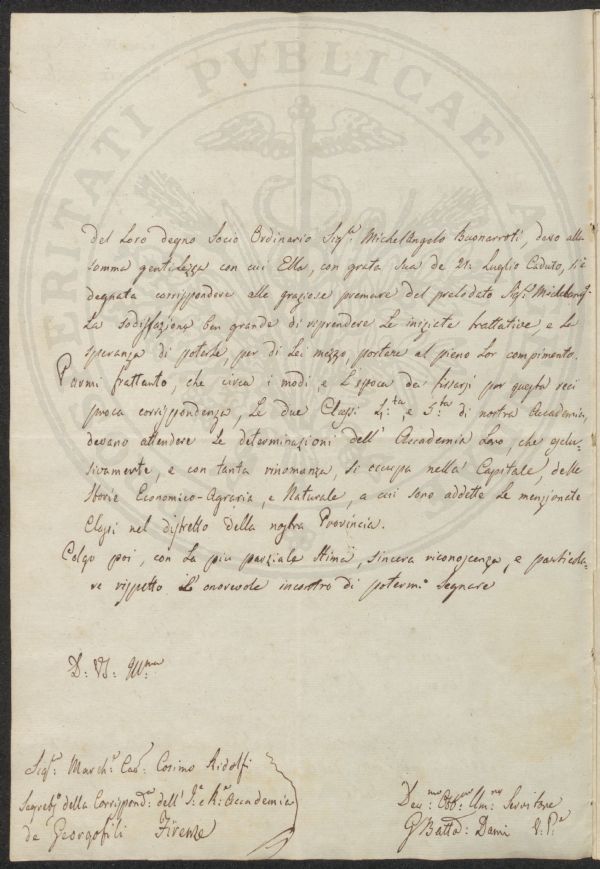 PVBLICAE
Del Loro degno Socio Ordinario Sigr. MichelAngelo Buonarroti, devo alla
somma gentilezza con cui Ella, con grata sua de 21. Luglio Caduto, si è
degnata corrispondere alle graziose premure del prelodato Sigr.
La sodisfazione ben grande di riprendere le iniziate trattative, e la
speranza di poterle, per di Lei mezzo, portare al pieno Lor compimento.
Parmi frattanto, che circa i modi, e l'epoca da fissarsi per questa reci
proca corrispondenza, Le due Classi 4:ta, e 5:ta di nostra Accademia,
devano attendere le determinazioni dell' Accademia Loro, che esclu-
sivamente, e con tanta rinomanza, si occupa nella Capitale, delle
Storie Economico-Agraria, e Naturale, a cui sono addette le menzionate
Classi nel distretto della nostra Provincia.
Colgo poi, con la piu parziale stima, sincera riconoscenza, e particola-
re rispetto l'onorevole incontro di potermi segnare
D: VS: Ill:ma
Sigr: March: Cav: Cosimo Ridolfi
Segreto della Corrispond: dell' I: e R: Accademia
de Georgofili Firenze
Dev:mo Obb:mo Um:mo Servitore
G Batta: Dami V: P:e